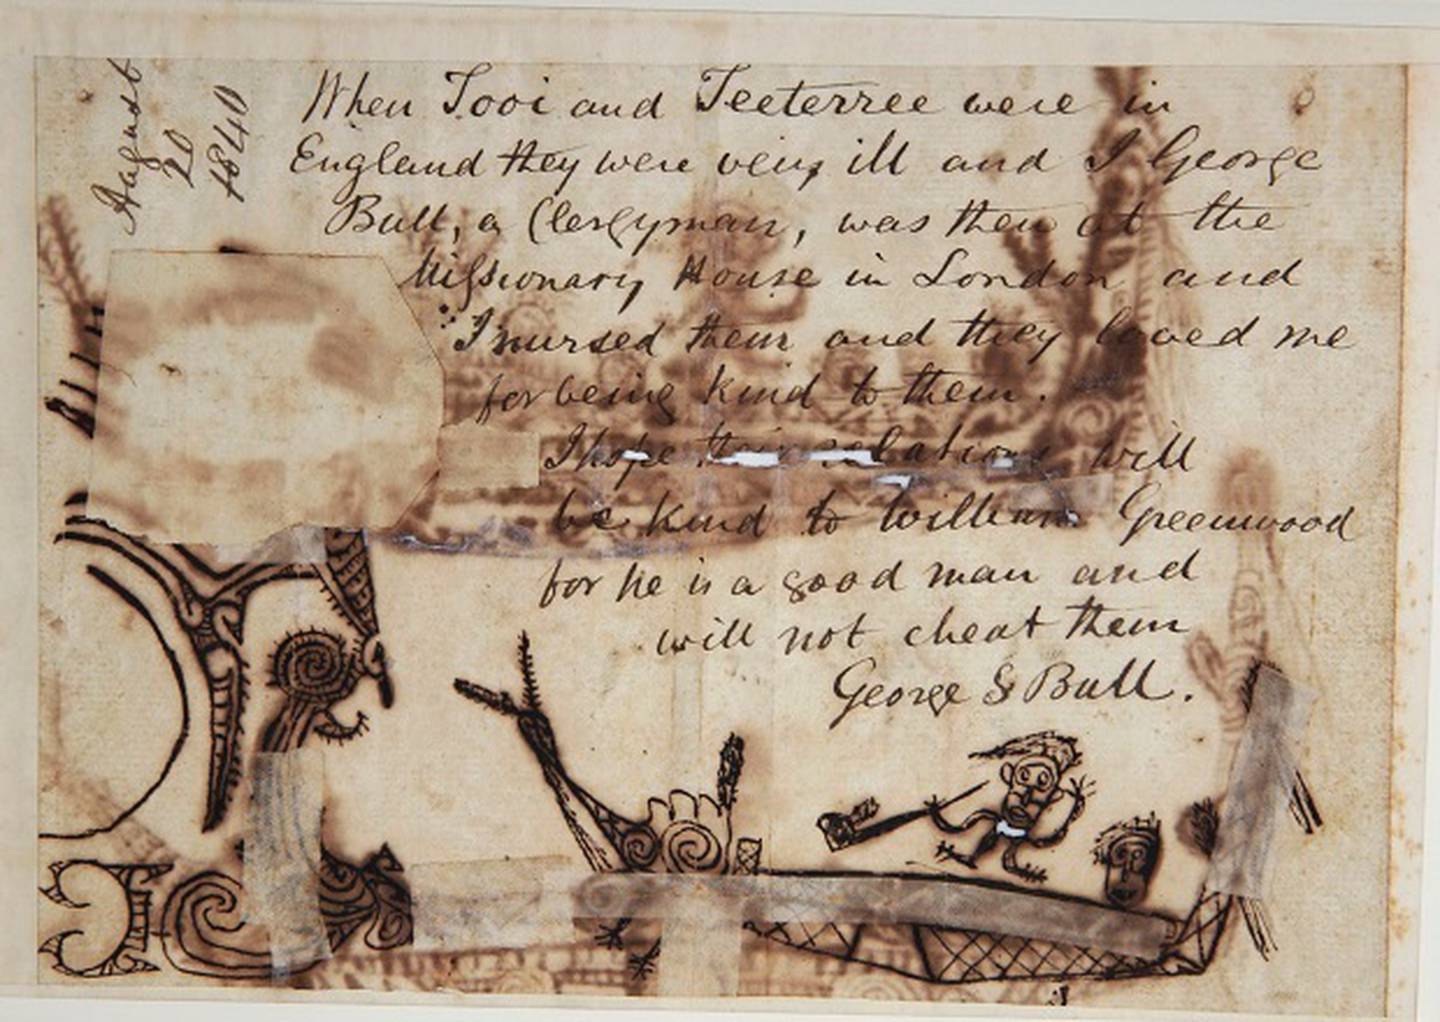 August
20
1840
When Tooi and Teeterree were in
England they were very ill and I George
Bull, a Clergyman, was then at the
Missionary House in London and
I nursed them and they loved me
for being kind to them.
I hope their relations will
be kind to William Greenwood
for he is a good man and
will not cheat them
George S Bull.